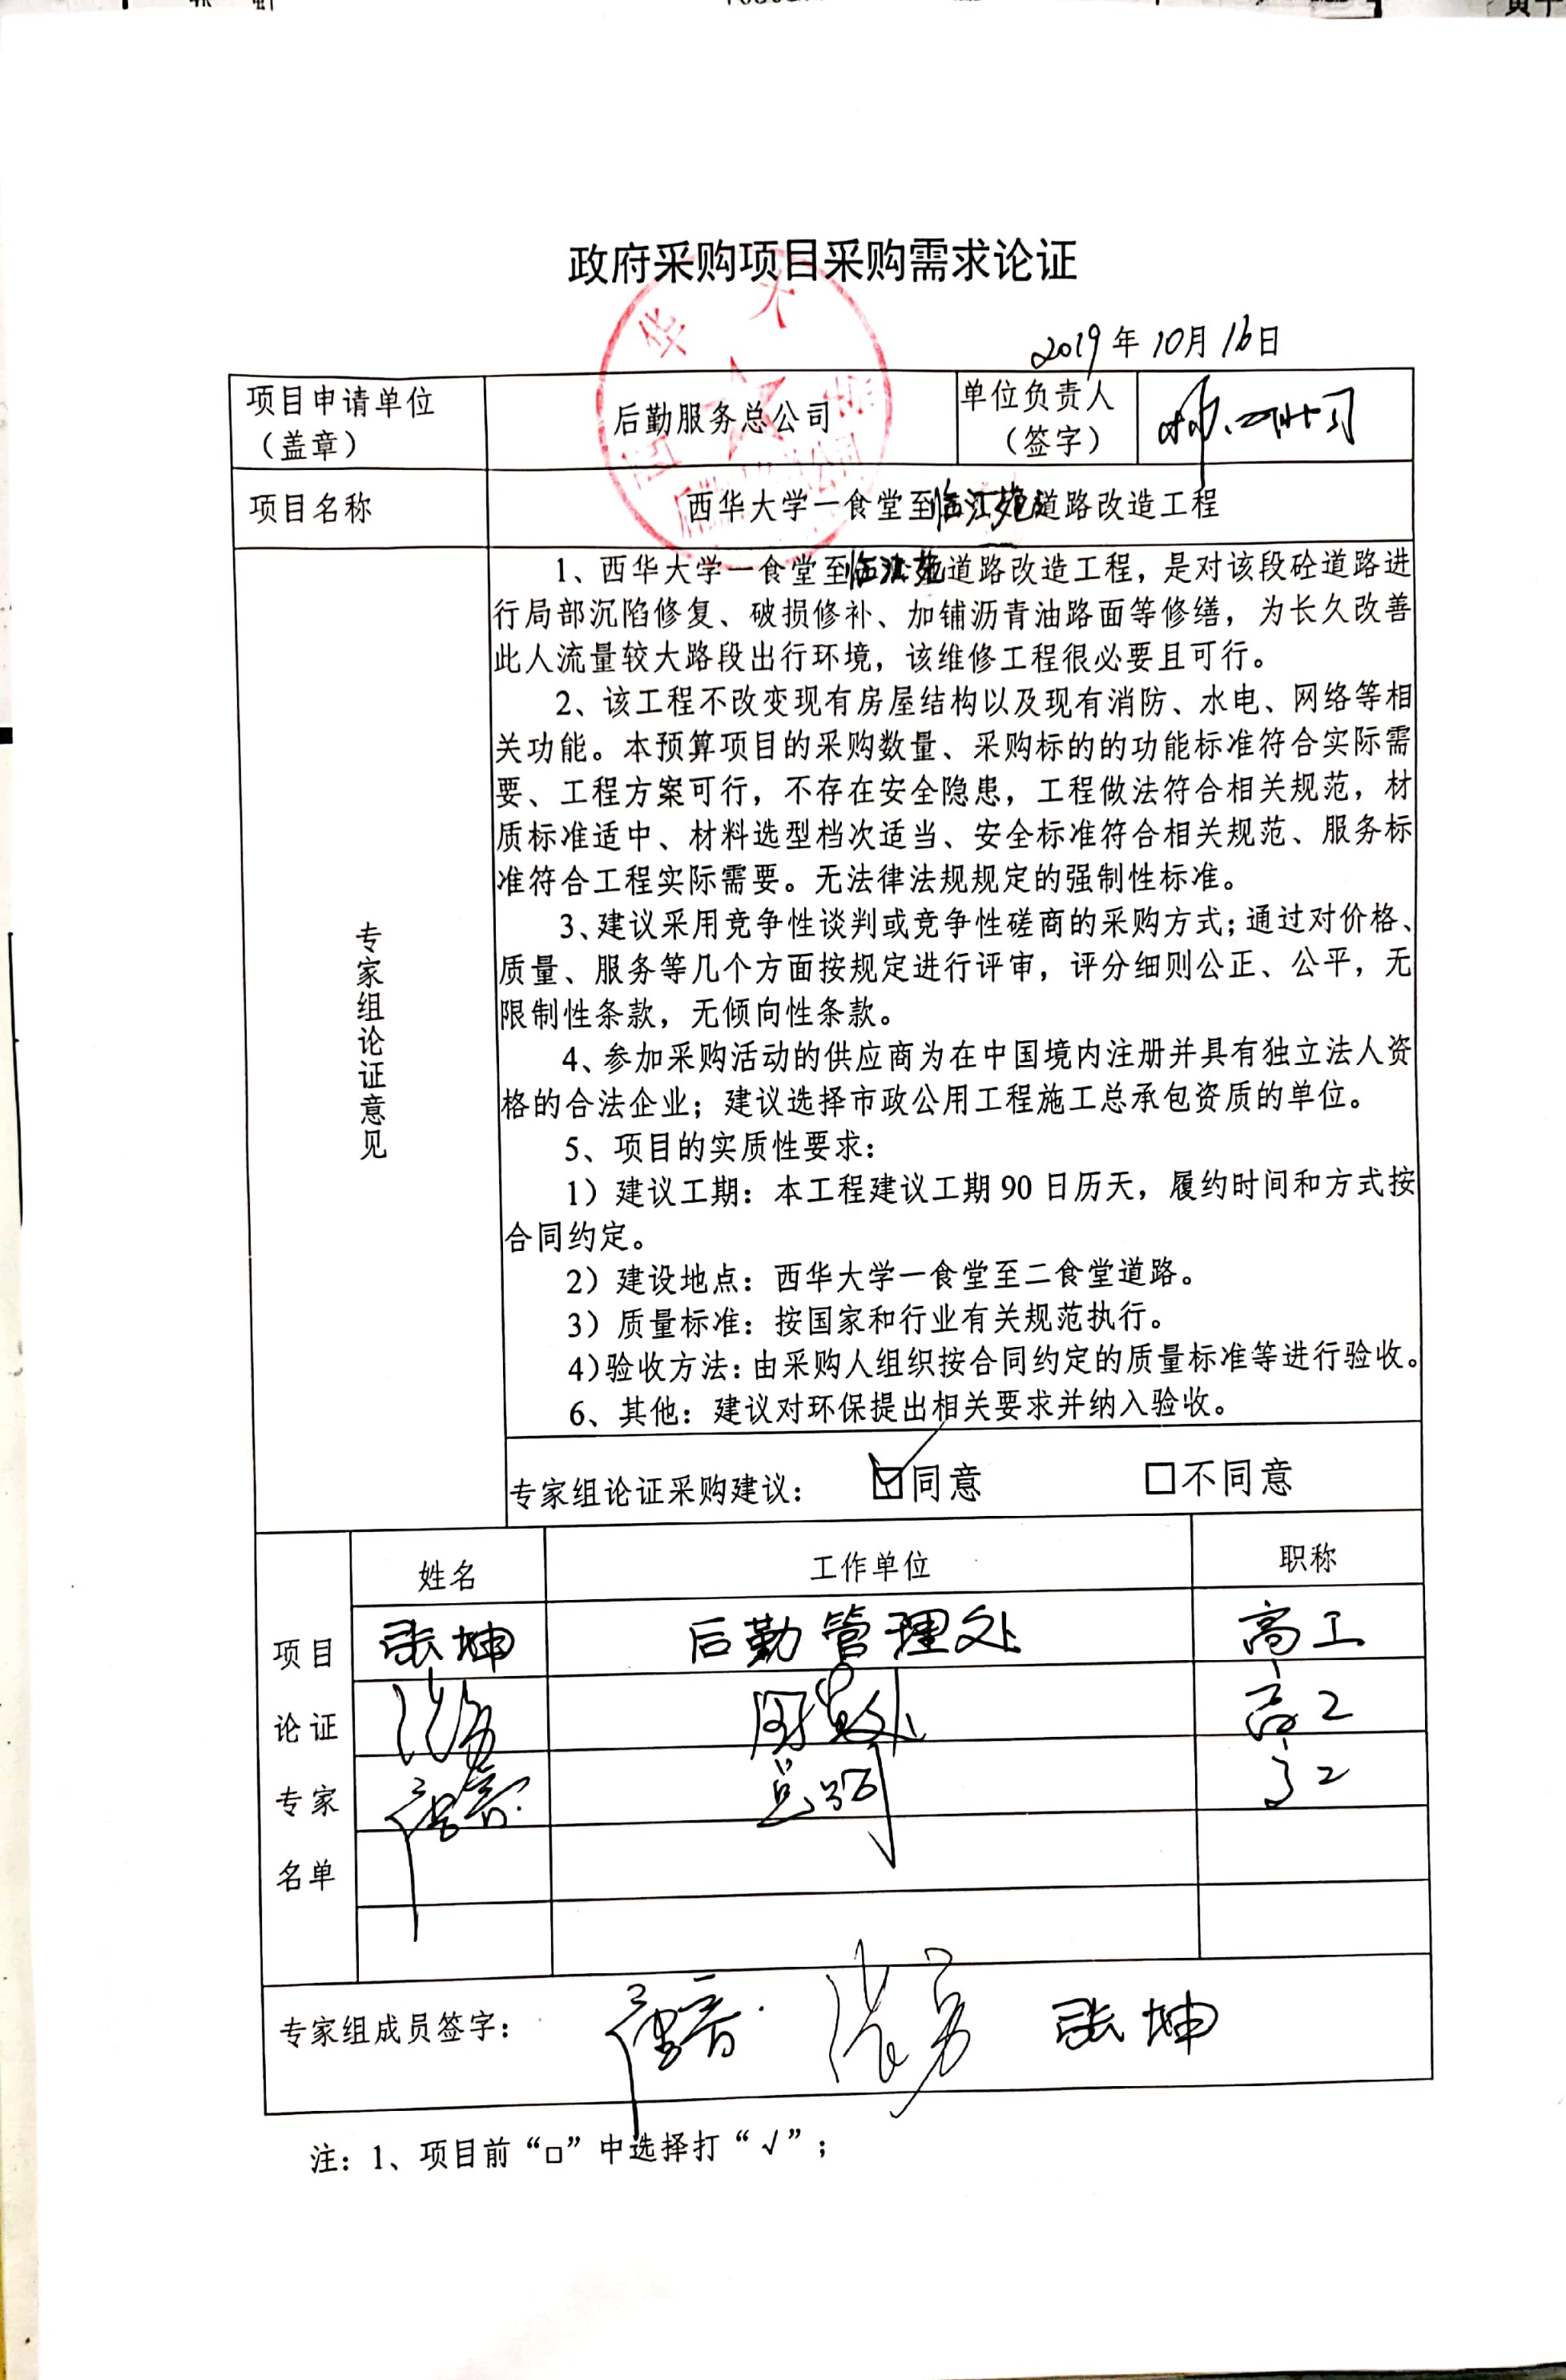 政府采购项目采购需求论证
2019年10月16日
项目申请单位
（盖章）
后勤服务总公司
单位负责人
（签字）
项目名称
西华大学一食堂至临江苑道路改造工程
专家组论证意见
1、西华大学一食堂至临江苑道路改造工程，是对该段砼道路进
行局部沉陷修复、破损修补、加铺沥青油路面等修缮，为长久改善
此人流量较大路段出行环境，该维修工程很必要且可行。
2、该工程不改变现有房屋结构以及现有消防、水电、网络等相
关功能。本预算项目的采购数量、采购标的的功能标准符合实际需
要、工程方案可行，不存在安全隐患，工程做法符合相关规范，材
质标准适中、材料选型档次适当、安全标准符合相关规范、服务标
准符合工程实际需要。无法律法规规定的强制性标准。
3、建议采用竞争性谈判或竞争性磋商的采购方式；通过对价格、
质量、服务等几个方面按规定进行评审，评分细则公正、公平，无
限制性条款，无倾向性条款。
4、参加采购活动的供应商为在中国境内注册并具有独立法人资
格的合法企业；建议选择市政公用工程施工总承包资质的单位。
5、项目的实质性要求：
1）建议工期：本工程建议工期 90 日历天，履约时间和方式按
合同约定。
2）建设地点：西华大学一食堂至二食堂道路。
3）质量标准：按国家和行业有关规范执行。
4）验收方法：由采购人组织按合同约定的质量标准等进行验收。
6、其他：建议对环保提出相关要求并纳入验收。
专家组论证采购建议： ☑同意 □不同意
项目论证专家名单
姓名 工作单位 职称
张坤 后勤管理处 高工
高工
高工
专家组成员签字： 张坤
注：1、项目前“□”中选择打“√”；